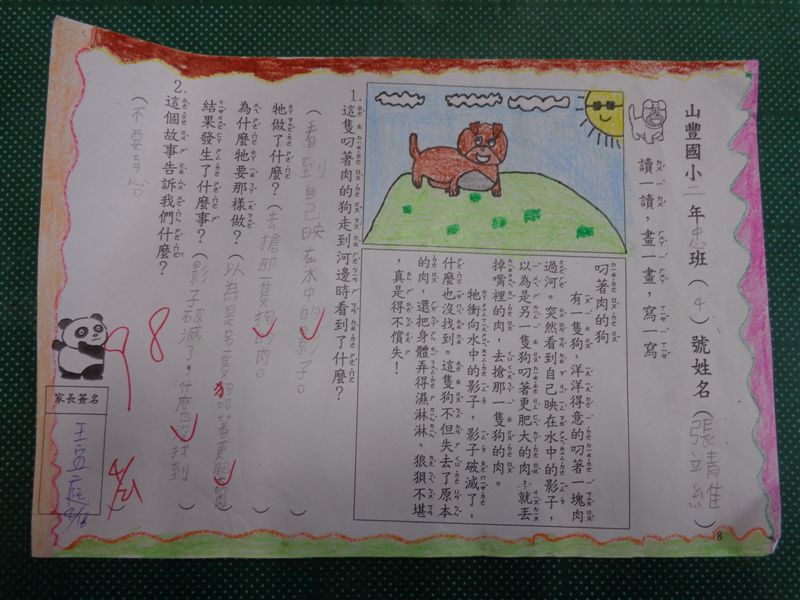 山豐國小二年忠班（4）號姓名（張靖維）
讀一讀，畫一畫，寫一寫
叼著肉的狗
有一隻狗，洋洋得意的叼著一塊肉
過河。突然看到自己映在水中的影子，
以為是另一隻狗叼著更肥大的肉，就丟
掉嘴裡的肉，去搶那一隻狗的肉。
牠衝向水中的影子，影子破滅了，
什麼也沒找到。這隻狗不但失去了原本
的肉，還把身體弄得濕淋淋、狼狽不堪
，真是得不償失！
1.這隻叼著肉的狗走到河邊時看到了什麼？
（看到自己映在水中的影子。）
牠做了什麼？（去搶那一隻狗的肉。）
為什麼牠要那樣做？（以為是另一隻狗叼著更肥大的肉）
結果發生了什麼事？（影子破滅了，什麼也沒找到）
2.這個故事告訴我們什麼？
（不要貪心）
98
家長簽名
8